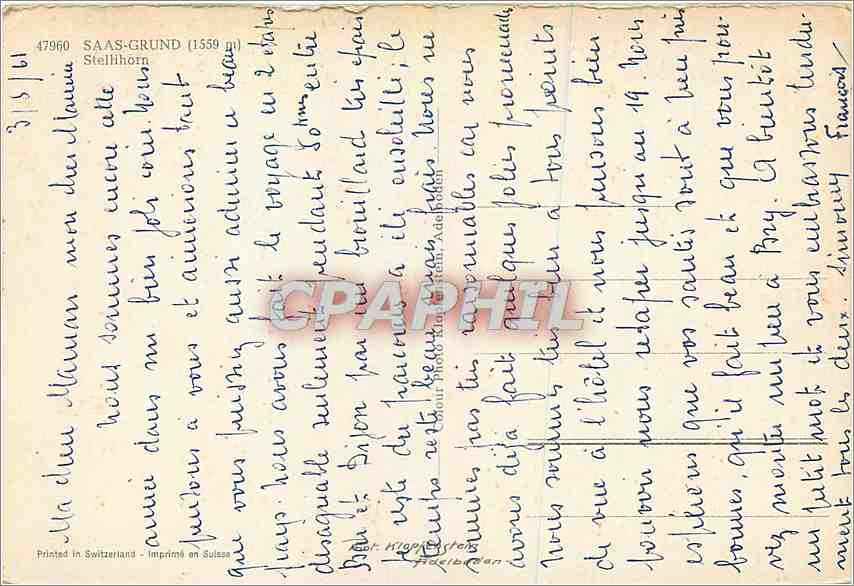 47960 SAAS-GRUND (1559 m)
Stellihorn
3/5/61
Ma chère Maman mon cher Mamie
nous sommes encore cette
année dans un bien joli coin. Nous
pensons à vous et aimerions tant
que vous puissiez aussi admirer ce beau
pays. Nous avons fait le voyage en 2 étapes
désagréable seulement pendant 50 kms entre
et Dijon par un brouillard très épais
le reste du parcours a été ensoleillé ; le
temps reste beau mais frais. Nous ne
sommes pas très raisonnables car nous
avons déjà fait quelques jolies promenades
Nous sommes très bien à tous points
de vue à l'hôtel et nous pensons bien
pouvoir nous retaper jusqu'au 19. Nous
espérons que vos santés sont à peu près
bonnes, qu'il fait beau et que vous pou-
vez monter un peu à Bry. A bientôt
un petit mot et vous embrassons tendre-
ment tous les deux. Simony François
Colour Photo Klopfenstein, Adelboden
CPAPHIL
Printed in Switzerland - Imprimé en Suisse
Phot. Klopfenstein
Adelboden